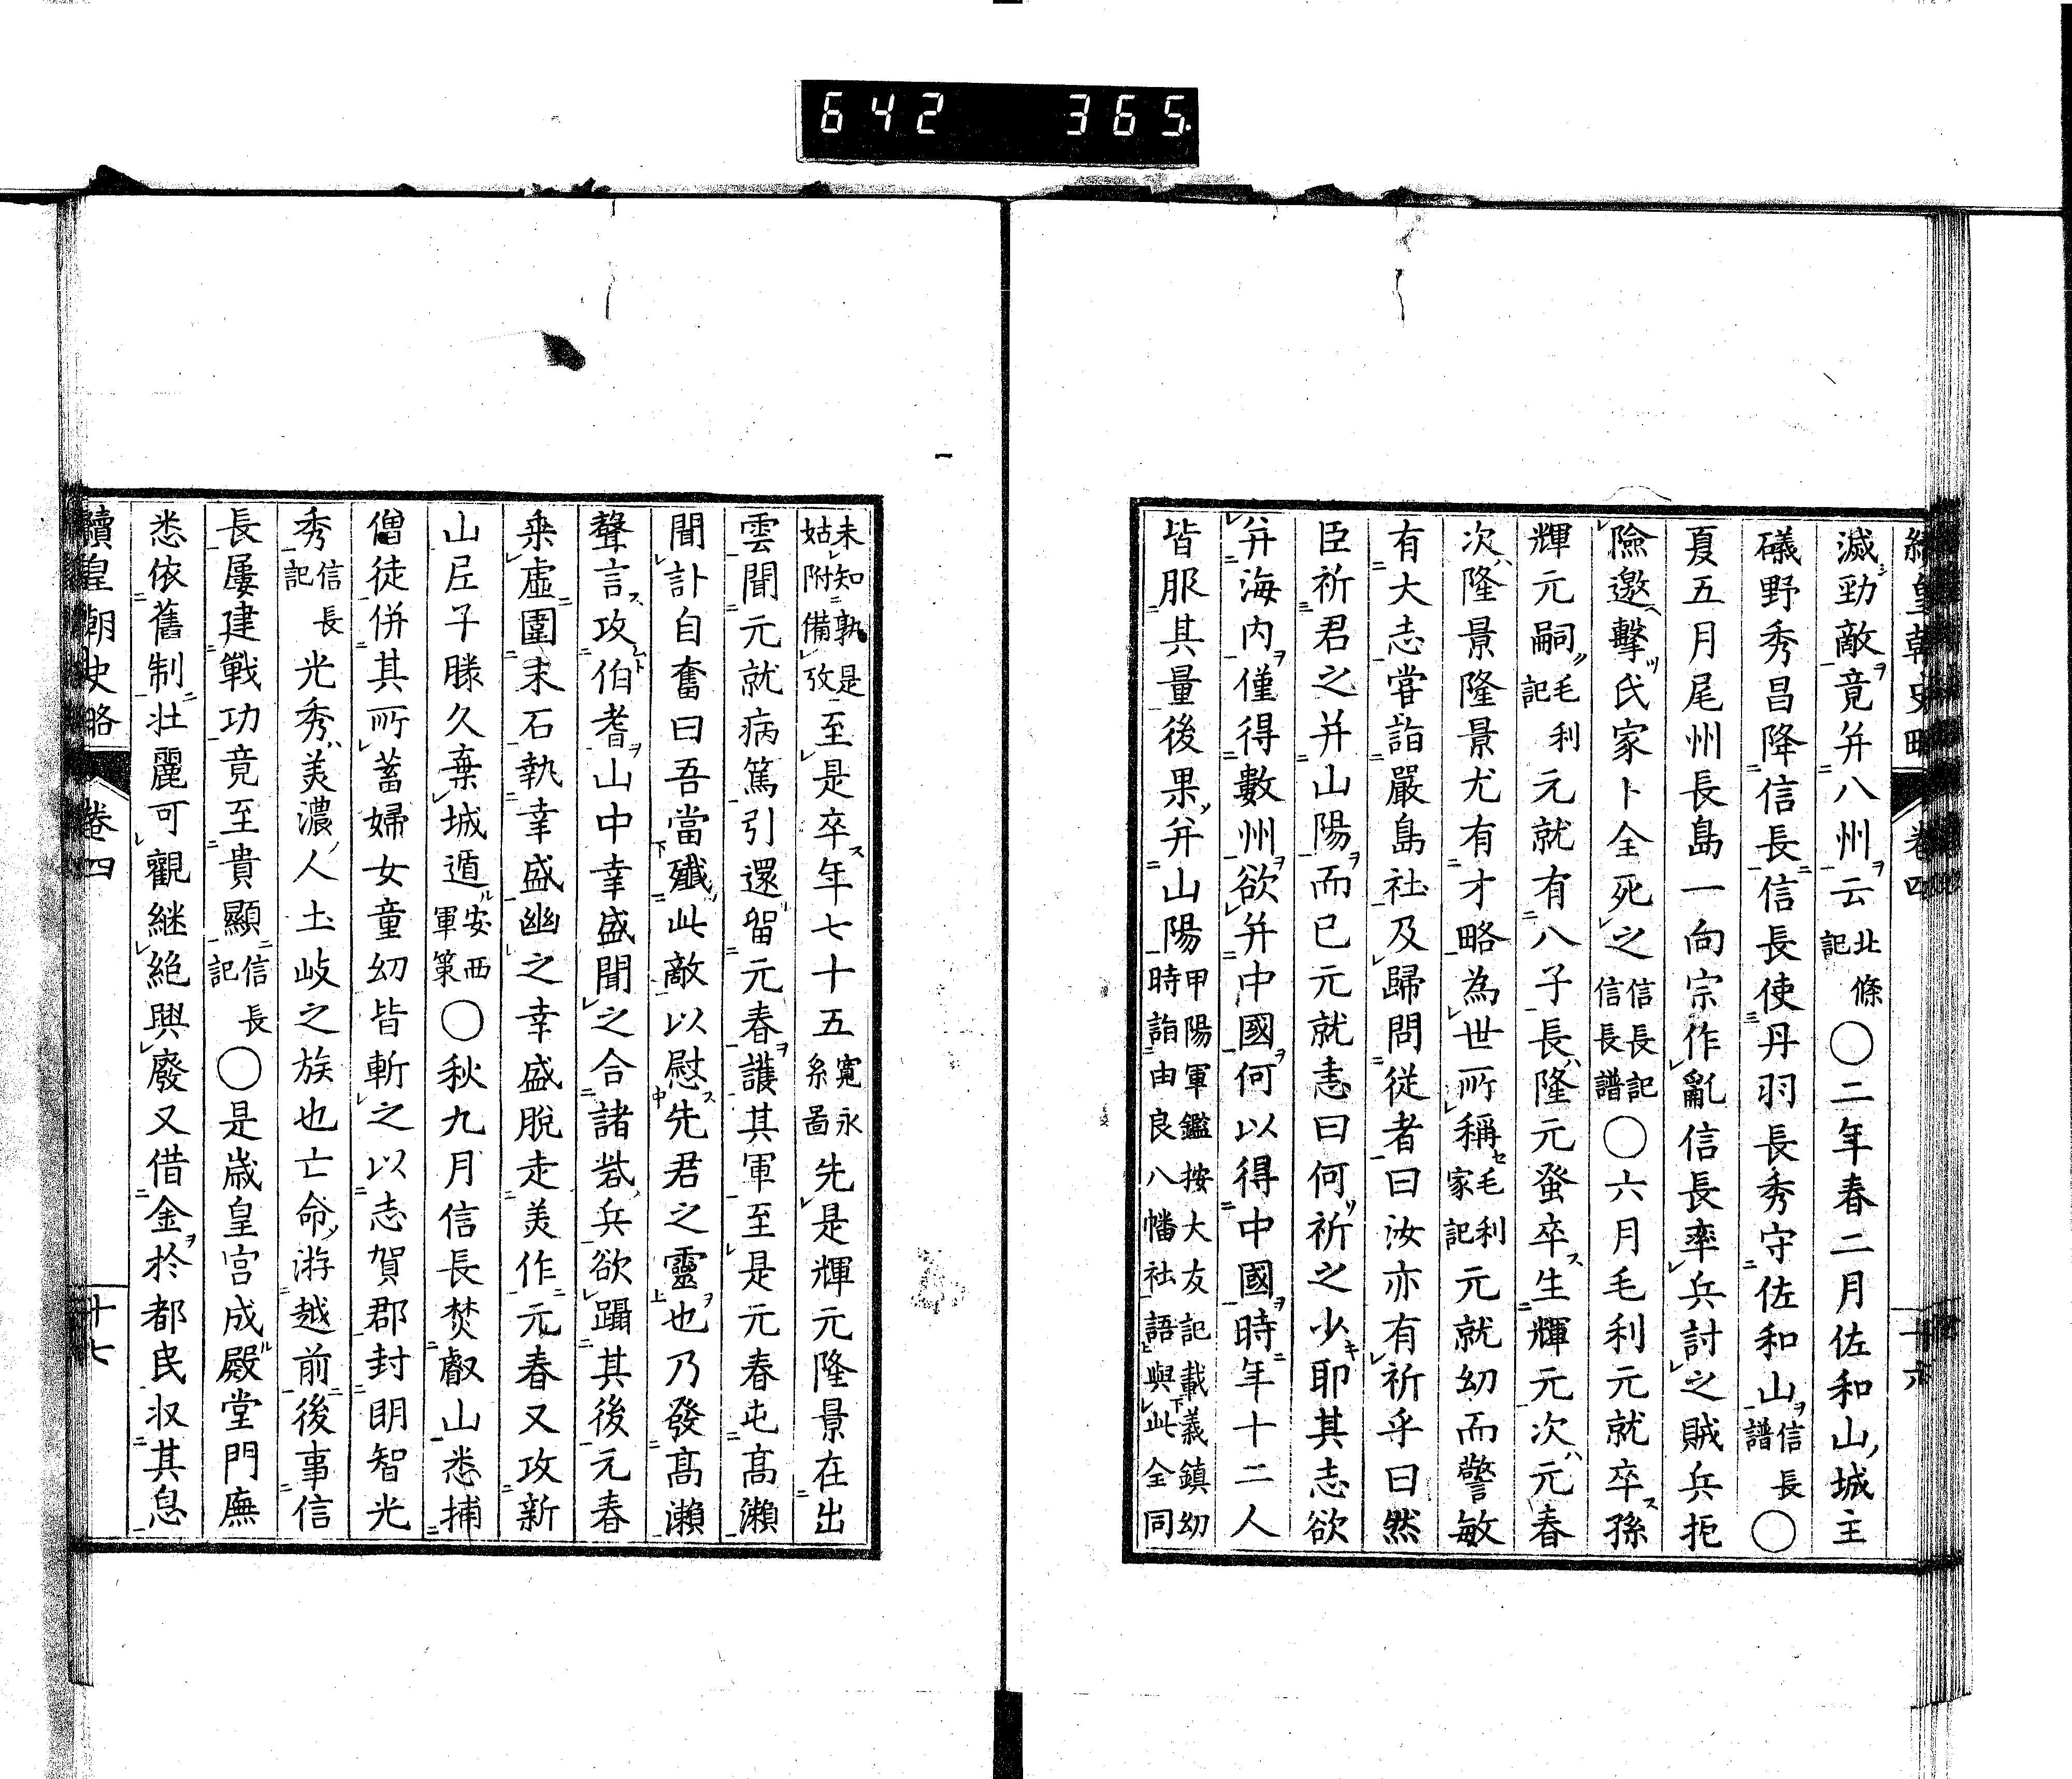 642 365.
滅勁敵竟并八州云北條記〇二年春二月佐和山城主
礒野秀昌降信長信長使丹羽長秀守佐和山信長譜〇
夏五月尾州長島一向宗作亂信長率兵討之賊兵拒
險邀擊氏家卜全死之信長記信長譜〇六月毛利元就卒孫
輝元嗣毛利記元就有八子長隆元蚤卒生輝元次元春
次隆景隆景尤有才略為世所稱毛利家記元就幼而警敏
有大志嘗詣嚴島社及歸問從者曰汝亦有祈乎曰然
臣祈君之并山陽而已元就恚曰何祈之少耶其志欲
并海内僅得數州欲并中國何以得中國時年十二人
皆服其量後果并山陽甲陽軍鑑按大友記載義鎮幼時詣由良八幡社語與此全同
未知孰是姑附備攷至是卒年七十五寬永系圖先是輝元隆景在出
雲聞元就病篤引還留元春護其軍至是元春屯高瀨
聞訃自奮曰吾當殲此敵以慰先君之靈也乃發高瀨
聲言攻伯耆山中幸盛聞之合諸砦兵欲躡其後元春
乘虛圍末石執幸盛幽之幸盛脫走美作元春又攻新
山尼子勝久棄城遁安西軍策〇秋九月信長焚叡山悉捕
僧徒併其所蓄婦女童幼皆斬之以志賀郡封明智光
秀信長記光秀美濃人土岐之族也亡命游越前後事信
長屢建戰功竟至貴顯信長記〇是歲皇宮成殿堂門廡
悉依舊制壯麗可觀継絕興廢又借金於都民収其息
續皇朝史略 卷四 十七